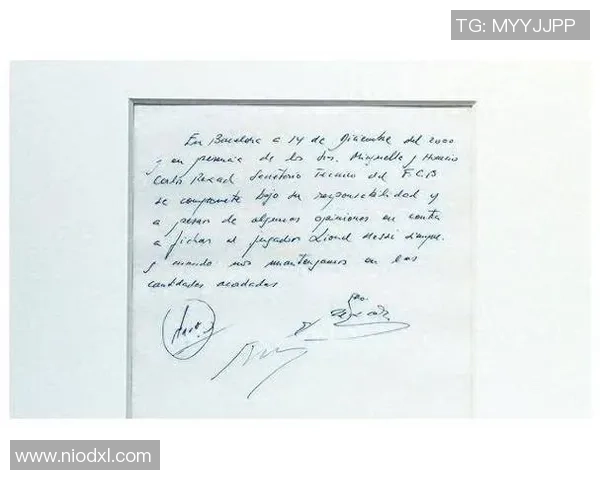 TG: MYYJJPP
En Barcelona a 14 de Diciembre del 2000
y en presencia de los Srs. Minguella y Horacio
Carlos Rexach Secretario Tecnico del F.C.B
se compromete bajo su responsabilidad y
a pesar de algunas opiniones en contra
a fichar al jugador Lionel Messi siempre
y cuando nos mantengamos en las
cantidades acordadas
www.niodxl.com